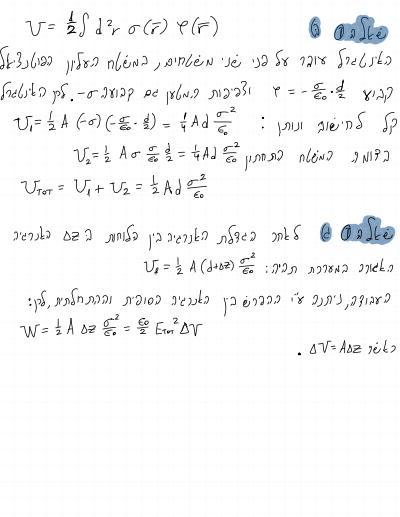 שאלה 6 U = ½∫ d²r σ(r̄) φ(r̄)
האינטגרל עובר על פני שני משטחים, במשטח העליון הפוטנציאל
קבוע φ = -σ/ε₀ · d/2 וצפיפות המטען גם קבועה -σ. לכן האינטגרל
קל לחישוב ונותן: U₁ = ½ A (-σ)(-σ/ε₀ · d/2) = ¼ A d σ²/ε₀
בדומה במשטח התחתון U₂ = ½ A σ σ/ε₀ d/2 = ¼ A d σ²/ε₀
U_TOT = U₁ + U₂ = ½ A d σ²/ε₀
שאלה לאחר הגדלת האנרגיה בין הלוחות ב Δz האנרגיה
האגורה במערכת תהיה: = ½ A (d+Δz) σ²/ε₀
העבודה, ניתנה ע״י ההפרש בין האנרגיה הסופית וההתחלתית, לכן:
W = ½ A Δz σ²/ε₀ = ε₀/2 E_TOT² ΔV
כאשר ΔV = AΔz.